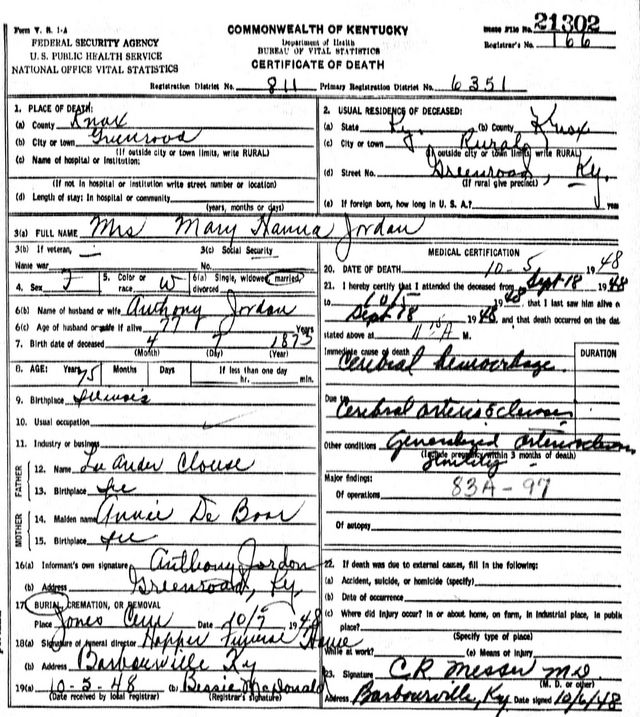 Form V. S. 1-A
FEDERAL SECURITY AGENCY
U. S. PUBLIC HEALTH SERVICE
NATIONAL OFFICE VITAL STATISTICS
COMMONWEALTH OF KENTUCKY
Department of Health
BUREAU OF VITAL STATISTICS
CERTIFICATE OF DEATH
State File No. 21302
Registrar's No. 166
Registration District No. 811 Primary Registration District No. 6351
1. PLACE OF DEATH:
(a) County Knox
(b) City or town Greenroad
(If outside city or town limits, write RURAL)
(c) Name of hospital or institution:
(If not in hospital or institution write street number or location)
(d) Length of stay: In hospital or community
(years, months or days)
2. USUAL RESIDENCE OF DECEASED:
(a) State Ky. (b) County Knox
(c) City or town Rural
(If outside city or town limits, write RURAL)
(d) Street No. Greenroad, Ky.
(If rural give precinct)
(e) If foreign born, how long in U. S. A.? years
3(a) FULL NAME Mrs Mary Hanna Jordan
3(b) If veteran,
Name war
3(c) Social Security
No.
4. Sex F
5. Color or race W
6(a) Single, widowed, married, divorced
6(b) Name of husband or wife Anthony Jordan
6(c) Age of husband or wife if alive 77 Years
7. Birth date of deceased 4 9 1873
(Month) (Day) (Year)
8. AGE: Years 75 Months Days If less than one day
hr. min.
9. Birthplace Illinois
10. Usual occupation
11. Industry or business
FATHER
12. Name Le Ander Clouse
13. Birthplace Ill
MOTHER
14. Maiden name Annie De Boar
15. Birthplace Ill
16(a) Informant's own signature Anthony Jordon
(b) Address Greenroad, Ky.
17. BURIAL, CREMATION, OR REMOVAL
Place Jones Cem Date 10/7 1948
18(a) Signature of funeral director Hopper Funeral House
(b) Address Barbourville Ky
19(a) 10-5-48 (b) Bessie McDonald
(Date received by local registrar) (Registrar's signature)
MEDICAL CERTIFICATION
20. DATE OF DEATH 10-5 1948
21. I hereby certify that I attended the deceased from Sept 18 1948
to 10/5 1948, that I last saw him alive o
Sept 18 1948, and that death occurred on the dat
stated above at 11:15 A M.
DURATION
Immediate cause of death
Cerebral hemorrhage
Due to
Cerebral arteriosclerosis
Other conditions Generalized arteriosclerosis
(Include pregnancy within 3 months of death)
Senility
Major findings:
83A-97
Of operations
Of autopsy
22. If death was due to external causes, fill in the following:
(a) Accident, suicide, or homicide (specify)
(b) Date of occurrence
(c) Where did injury occur? In or about home, on farm, in industrial place, in public
place?
(Specify type of place)
While at work? (e) Means or injury
23. Signature C R Messer MD
(M. D. or other)
Address Barbourville, Ky Date signed 10/6/48